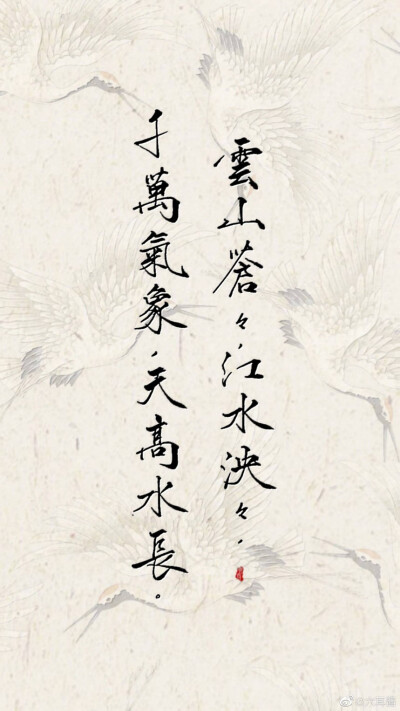 雲山蒼々，江水泱々，
千萬氣象，天高水長。